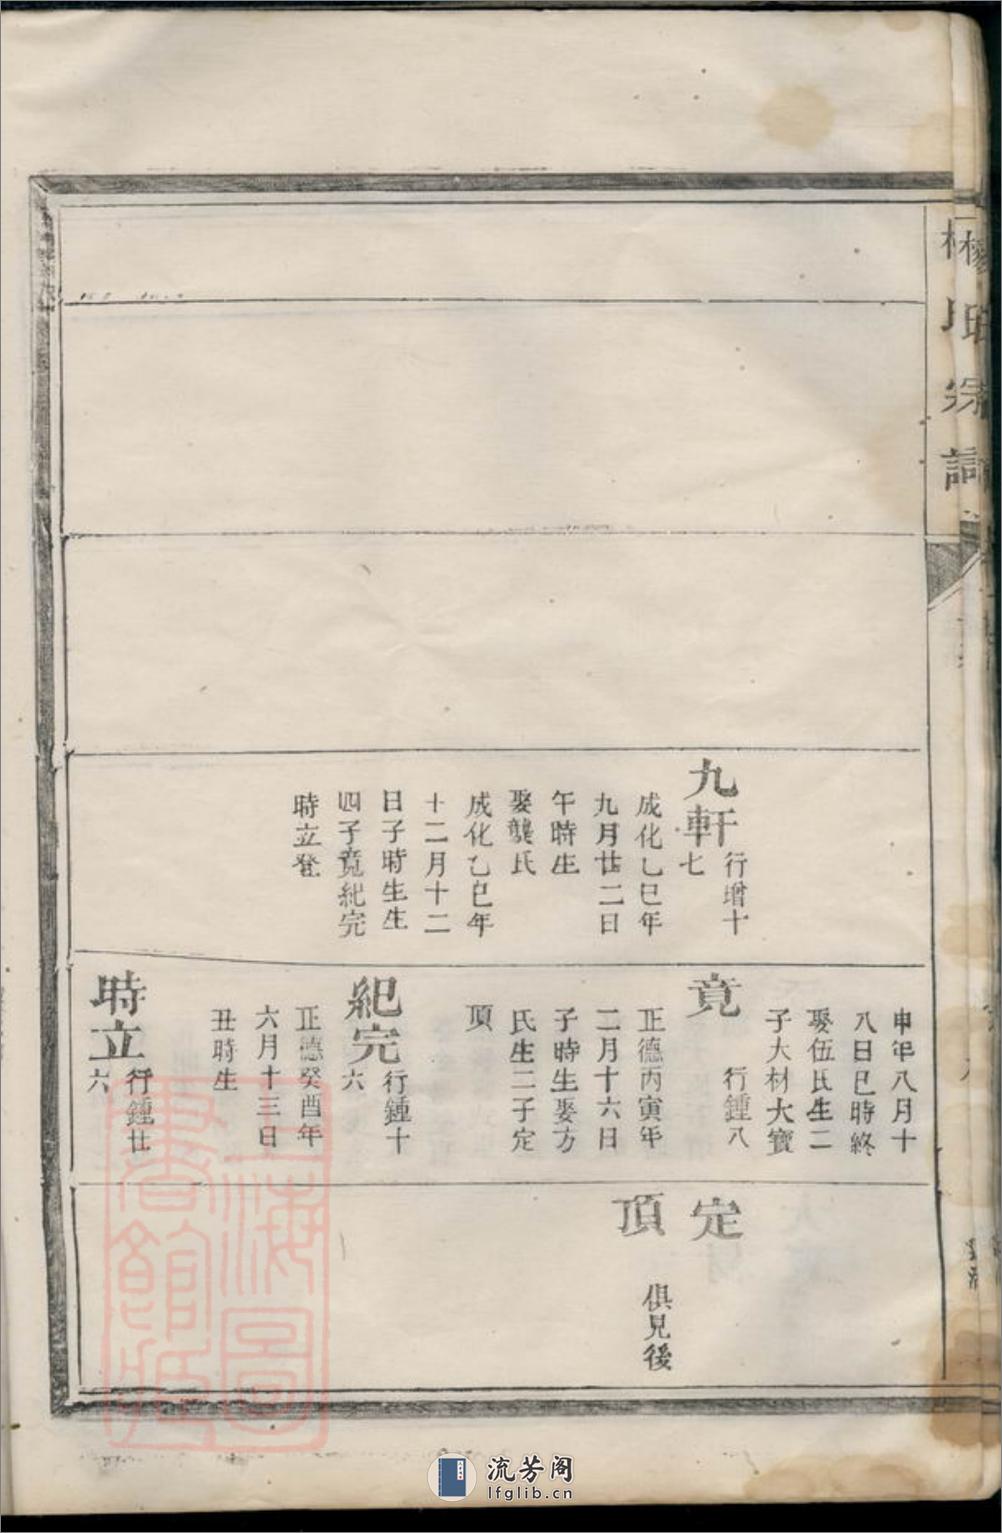 九軒
行增十
七
成化乙巳年
九月廿二日
午時生
娶龔氏
成化乙巳年
十二月十二
日子時生生
四子竟紀完
時立登
申年八月十
八日巳時終
娶伍氏生二
子大材大寶
竟
行鍾八
正德丙寅年
二月十六日
子時生娶方
氏生二子定
頂
紀完
行鍾十
六
正德癸酉年
六月十三日
丑時生
時立
行鍾廿
六
定
頂
俱見後
上海圖
書館藏
流芳阁
lfglib.cn